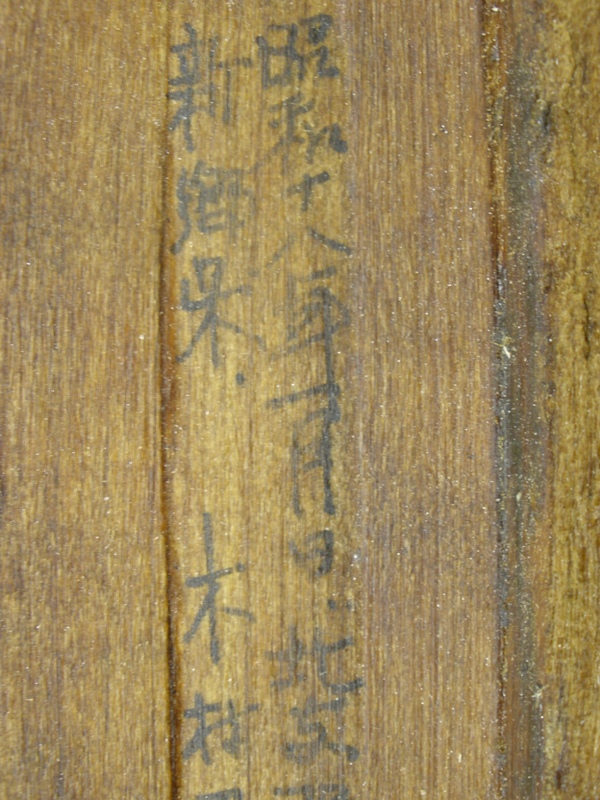 昭和十八年一月日、北支
新郷県、木村